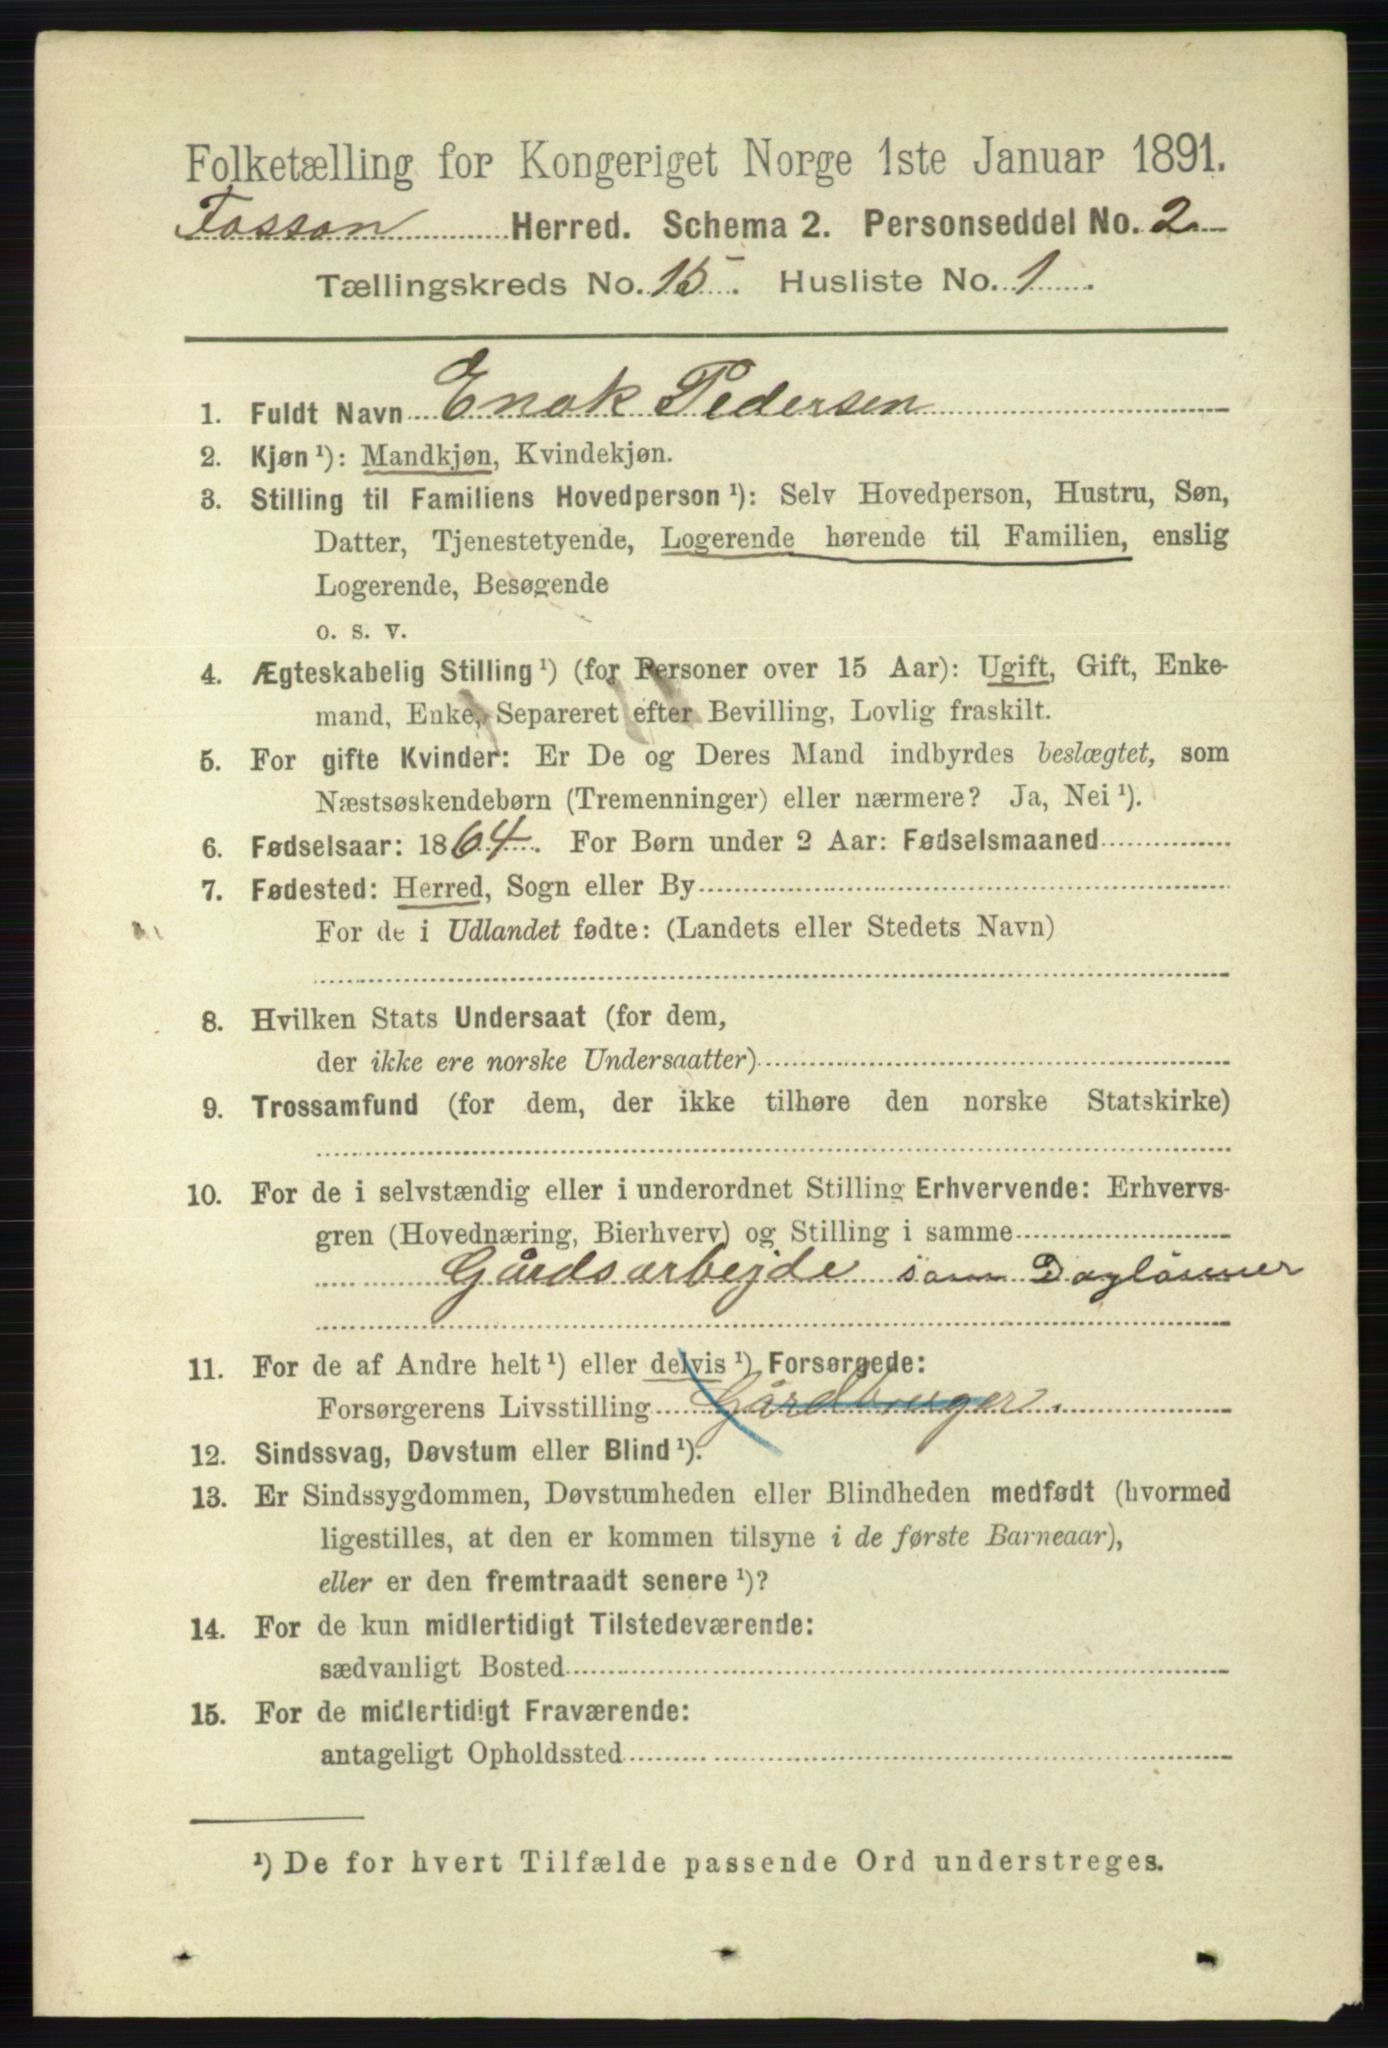 Folketælling for Kongeriget Norge 1ste Januar 1891.
Fosson Herred. Schema 2. Personseddel No. 2
Tællingskreds No. 15. Husliste No. 1
1. Fuldt Navn Enok Pedersen
2. Kjøn ¹): Mandkjøn, Kvindekjøn.
3. Stilling til Familiens Hovedperson ¹): Selv Hovedperson, Hustru, Søn,
Datter, Tjenestetyende, Logerende hørende til Familien, enslig
Logerende, Besøgende
o. s. v.
4. Ægteskabelig Stilling ¹) (for Personer over 15 Aar): Ugift, Gift, Enke-
mand, Enke, Separeret efter Bevilling, Lovlig fraskilt.
5. For gifte Kvinder: Er De og Deres Mand indbyrdes beslægtet, som
Næstsøskendebørn (Tremenninger) eller nærmere? Ja, Nei ¹).
6. Fødselsaar: 1864. For Børn under 2 Aar: Fødselsmaaned
7. Fødested: Herred, Sogn eller By
For de i Udlandet fødte: (Landets eller Stedets Navn)
8. Hvilken Stats Undersaat (for dem,
der ikke ere norske Undersaatter)
9. Trossamfund (for dem, der ikke tilhøre den norske Statskirke)
10. For de i selvstændig eller i underordnet Stilling Erhvervende: Erhvervs-
gren (Hovednæring, Bierhverv) og Stilling i samme
Gårdsarbejde som Daglönner
11. For de af Andre helt ¹) eller delvis ¹) Forsørgede:
Forsørgerens Livsstilling Gårdbruger.
12. Sindssvag, Døvstum eller Blind ¹).
13. Er Sindssygdommen, Døvstumheden eller Blindheden medfødt (hvormed
ligestilles, at den er kommen tilsyne i de første Barneaar),
eller er den fremtraadt senere ¹)?
14. For de kun midlertidigt Tilstedeværende:
sædvanligt Bosted
15. For de midlertidigt Fraværende:
antageligt Opholdssted
¹) De for hvert Tilfælde passende Ord understreges.